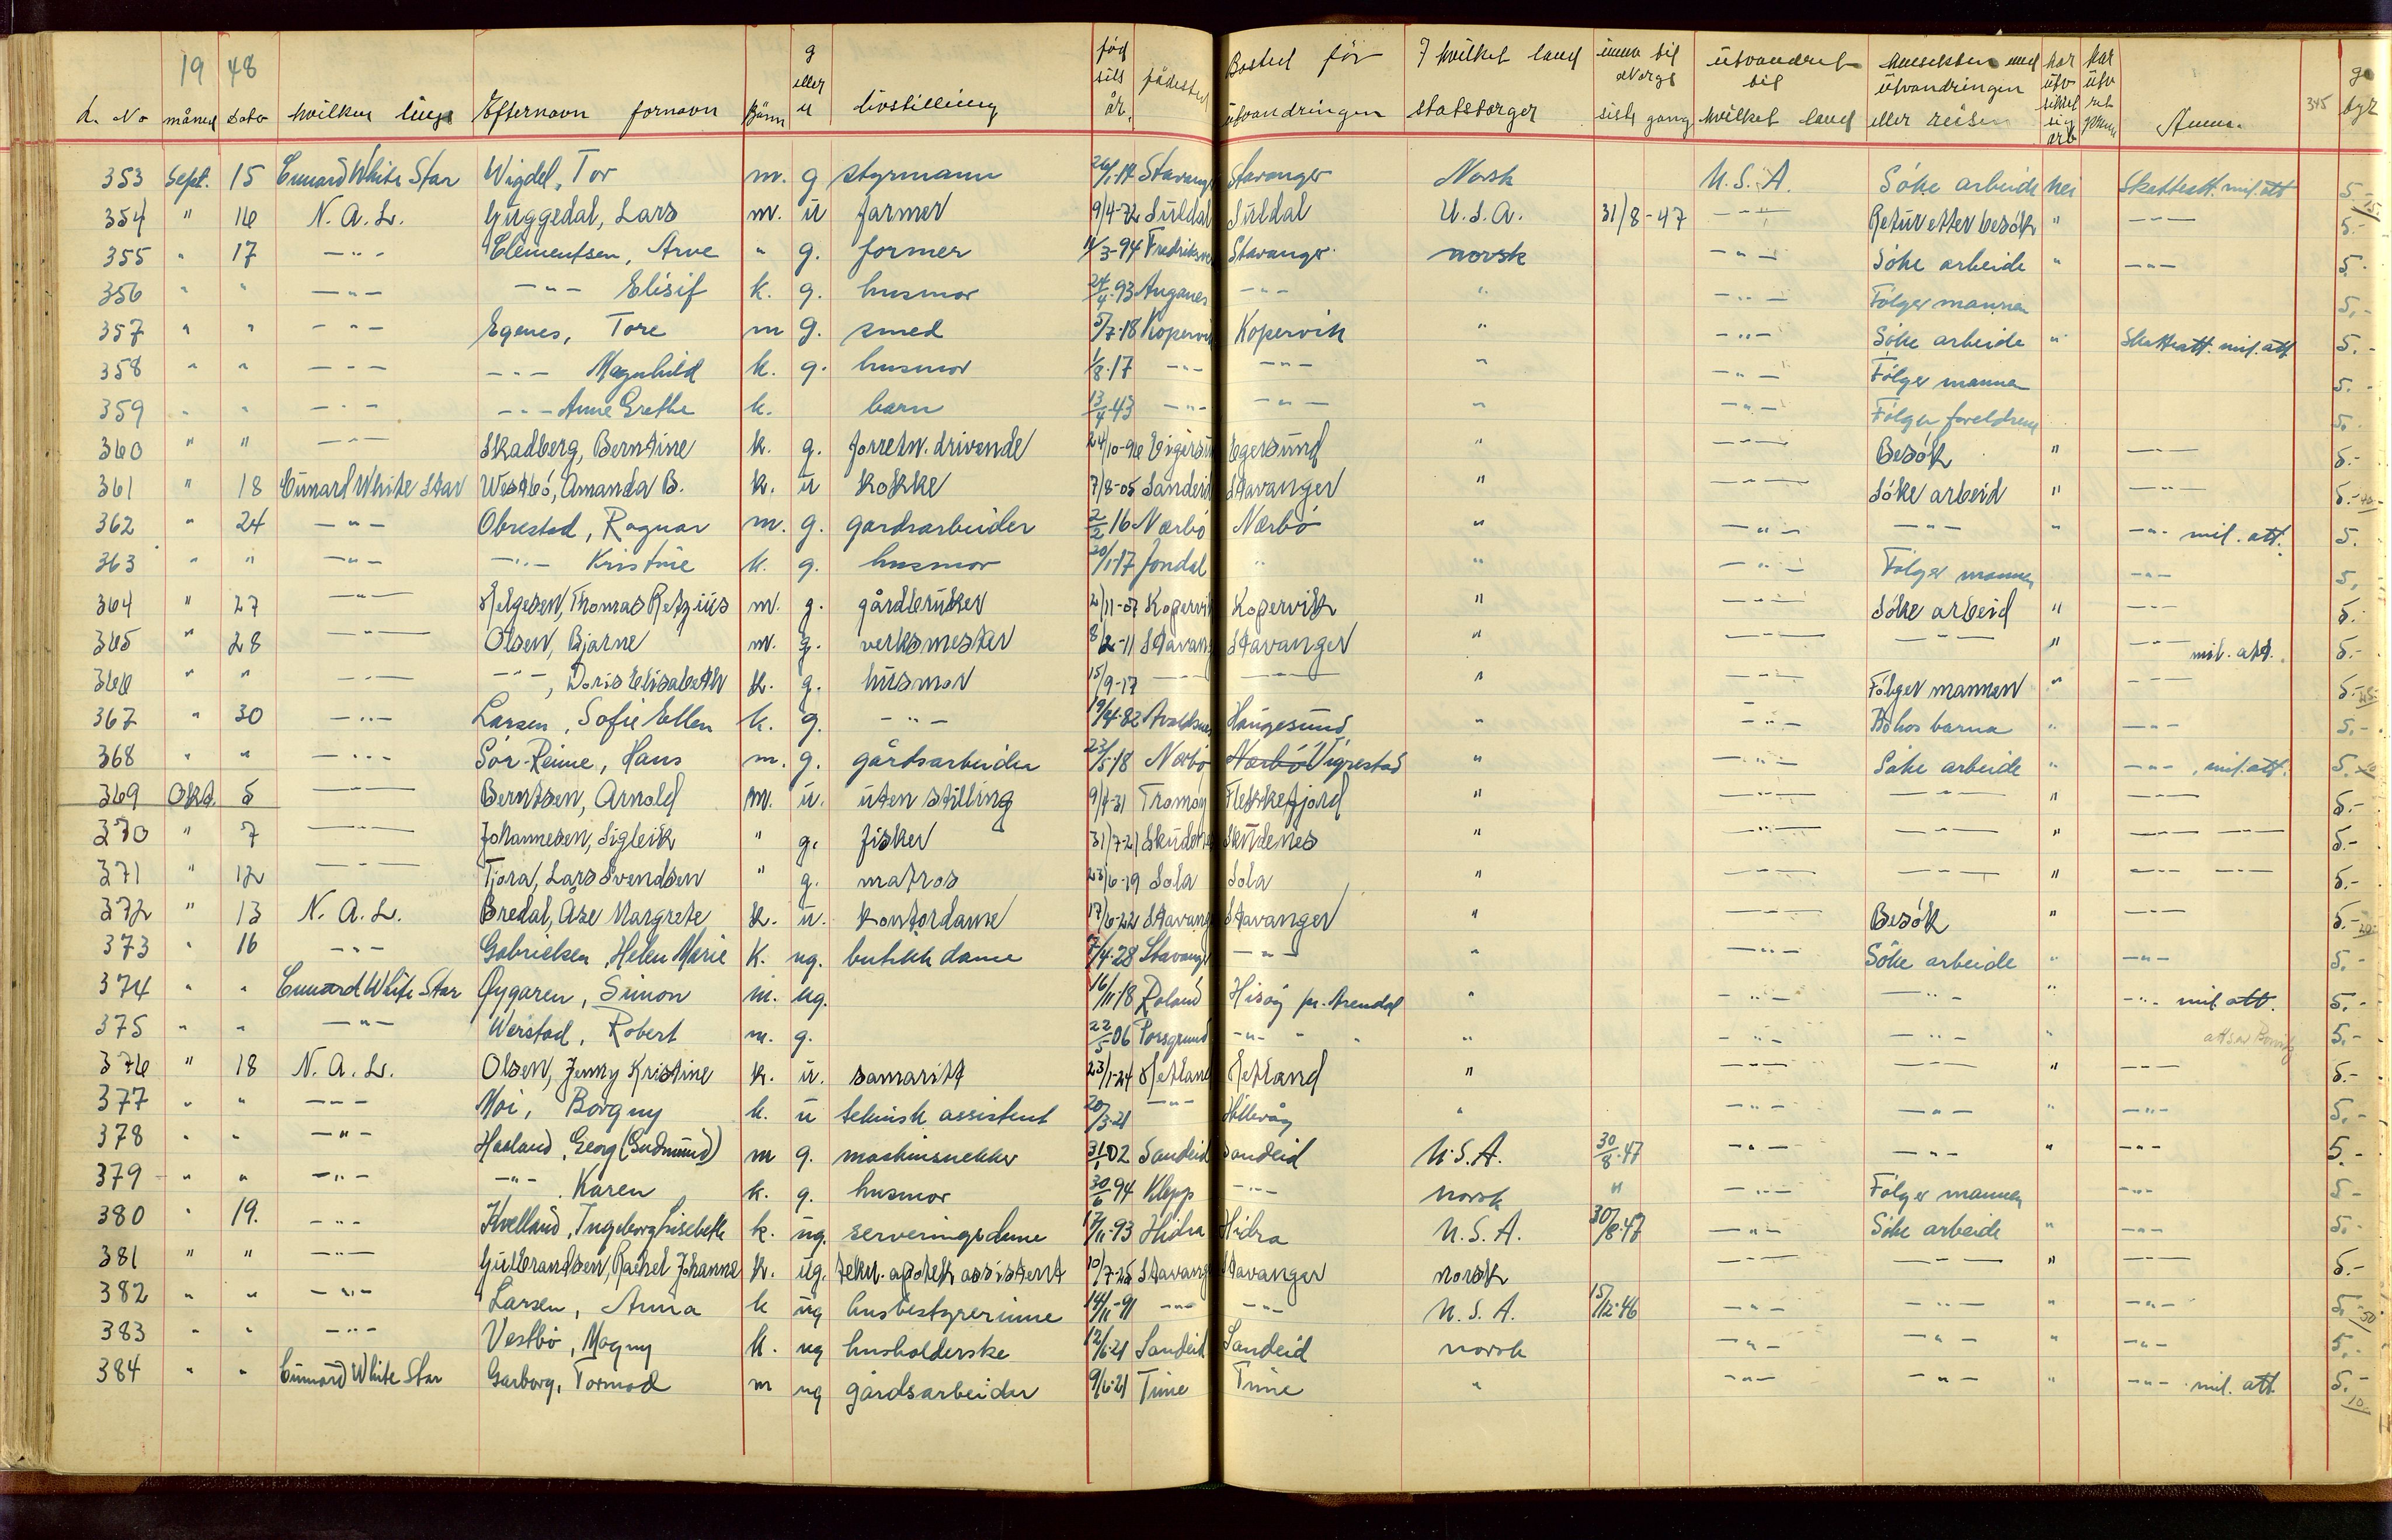 19 48
L. No måned dato hvilken linje Efternavn fornavn Kjønn g eller u livstilling fød sels år. fødested Bosted før utvandringen I hvilket land statsborger innv til Norge siste gang utvandret til hvilket land hensikten med utvandringen eller reisen har utv sikret sig arb har utv Anm. 345 ge byr
353 Sept. 15 Cunard White Star Wigdel, Tor m. g styrmann 26/1-14 Stavang Stavanger Norsk U.S.A. Söke arbeide nei Skatteatt. mil. att 5.- 15.
354 " 16 N.A.L. Guggedal, Lars m. u farmer 9/4-72 Suldal Suldal U.S.A. 31/8-47 -"- Retur etter besök " -"- 5.-
355 " 17 -"- Clementsen, Arve " g. former 11/3-94 Fredriks Stavanger norsk -"- Söke arbeide " -"- 5.-
356 " " -"- -"- Elisif k. g. husmor 24/4-93 Auganes -"- " -"- Fölger mannen 5,-
357 " " -"- Egenes, Tore m g. smed 5/7-18 Kopervik Kopervik " -"- Söke arbeide " Skatteatt. mil. att 5.-
358 " " -"- -"- Magnhild k. g. husmor 1/8-17 -"- -"- " -"- Fölger mannen 5.-
359 " " -"- -"- Anne Grethe k. barn 13/4-43 -"- -"- " -"- Fölger foreldrene 5.-
360 " " -"- Skadberg, Berntine k. g. forretn. drivende 24/10-96 Eigersu Egersund " -"- Besök " -"- 5.-
361 " 18 Cunard White Star Westbö, Amanda B. k. u kokke 7/8-05 Sandeid Stavanger " -"- Söke arbeid " -"- 5.- 40.-
362 " 24 -"- Obrestad, Ragnar m. g. gardsarbeider 2/2 16 Nærbö Nærbö " -"- -"- " -"- mil. att. 5.
363 " " -"- -"- Kristine k. g. husmor 20/1-17 Jondal " " -"- Fölger mannen -"- 5,
364 " 27 -"- Helgesen, Thomas Retzius m. g. gårdbruker 21/11-07 Kopervik Kopervik " -"- Söke arbeid " -"- 5.-
365 " 28 -"- Olsen, Bjarne m. g. verksmester 8/2-11 Stavang Stavanger " -"- -"- " -"- mil. att. 5.-
366 " " -"- -"-, Doris Elisabeth k. g. husmor 15/9-17 -"- -"- " -"- Fölger mannen " -"- 5.- 25.-
367 " 30 -"- Larsen, Sofie Ellen k. g. -"- 19/4-82 Avaldsnes Haugesund " -"- Bo hos barna " -"- 5.-
368 " " -"- Sör-Reime, Hans m. g. gårdsarbeider 23/5-18 Nærbö Nærbö Vigrestad " -"- Söke arbeide " -"-, mil. att. 5.- 10
369 Okt. 5 -"- Berntsen, Arnold m. u. uten stilling 9/7-31 Tromöy Flekkefjord " -"- -"- " -"- 5.-
370 " 7 -"- Johannesen, Sigleik " g. fisker 31/7-21 Skudene Skudenes " -"- -"- " -"- -"- 5.-
371 " 12 -"- Tjora, Lars Svendsen " g. matros 23/6-19 Sola Sola " -"- -"- " -"- -"- 5.-
372 " 13 N.A.L. Bredal, Ase Margrete k. u. kontordame 17/6-22 Stavang Stavanger " -"- Besök " -"- 5.- 20.-
373 " 16 -"- Gabrielsen, Helen Marie k. ug. butikk dame 7/4-28 Stavang -"- " -"- Söke arbeide " -"- 5.-
374 " " Cunard White Star Øygaren, Simon m. ug. 16/11-18 Roland Hisöy pr. Arendal " -"- -"- " -"- mil. att. 5.-
375 " " -"- Werstad, Robert m. g. 22/5 06 Porsgrund -"- " " -"- -"- " 5.-
376 " 18 N.A.L. Olsen, Jenny Kristine k. u. samaritt 23/1-24 Hetland Hetland " -"- -"- " -"- 5.-
377 " " -"- Moi, Borgny k. u teknisk assistent 20/3-21 -"- Hillevåg " -"- -"- " -"- 5.-
378 " " -"- Haaland, Georg (Gudmund) m g. maskinsnekker 31/1 02 Sandeid Sandeid U.S.A. 30/8-47 -"- -"- " -"- 5.-
379 " " -"- -"- Karen k. g. husmor 30/6 94 Klepp -"- norsk " -"- Fölger mannen -"- 5-
380 " 19. -"- Kvelland, Ingeborg Lisebeth k. ug. serveringsdame 17/11-93 Hidra Hidra U.S.A. 30/8-47 -"- Söke arbeide " -"- 5.-
381 " " -"- Gulbrandsen, Rachel Johanne k. ug. tekn. apotek assistent 10/7-25 Stavang Stavanger norsk -"- -"- " -"- 5.-
382 " " -"- Larsen, Anna k ug husbestyrerinne 14/11-91 -"- -"- U.S.A. 15/12-46 -"- -"- " -"- 5.- 50
383 " " -"- Vestbö, Magny k. ug husholderske 12/6-21 Sandeid Sandeid norsk -"- -"- " -"- 5.-
384 " " Cunard White Star Garborg, Tormod m ug gårdsarbeider 9/6-21 Time Time " -"- -"- " -"- mil. att. 5.- 10.-